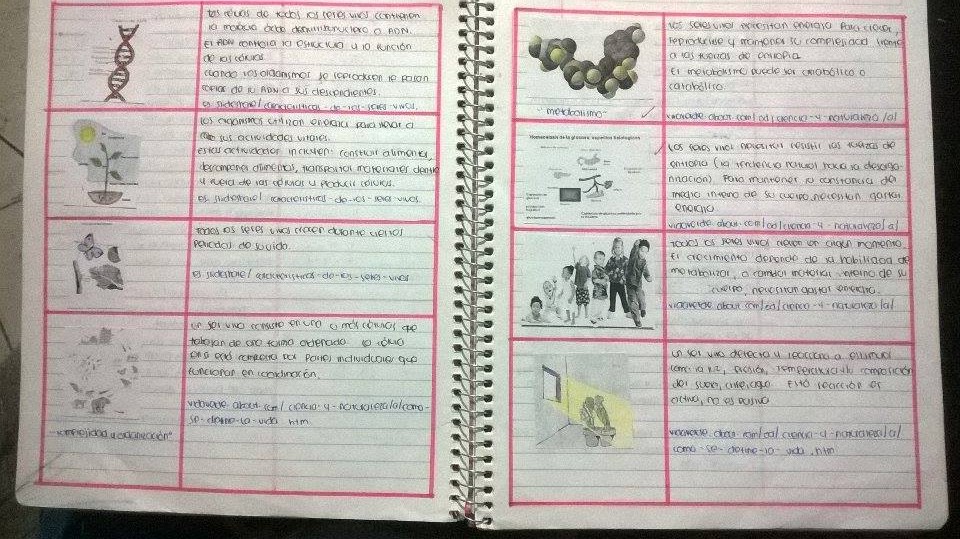 las células de todos los seres vivos contienen
la molécula ácido desoxirribonucleico o ADN.
El ADN controla la estructura y la función
de las células.
cuando los organismos se reproducen le pasan
copias de su ADN a sus descendientes.
es.slideshare/características-de-los-seres-vivos.
los organismos utilizan energía para llevar a
sus actividades vitales.
estas actividades incluyen: construir alimentos,
descomponer alimentos, transportar materiales dentro
y fuera de las células y producir células.
es.slideshare/características-de-los-seres-vivos.
Todos los seres vivos crecen durante ciertos
periodos de su vida.
es.slideshare/características-de-los-seres-vivos
un ser vivo consiste en una o más células que
trabajan de una forma ordenada. la célula
en si está compuesta por partes individuales que
funcionan en coordinación.
vidaverde.about.com/ciencia-y-naturaleza/a/como-
se-define-la-vida.htm
"complejidad y organización"
los seres vivos necesitan energía para crecer,
reproducirse y mantener su complejidad frente
a las fuerzas de entropía.
El metabolismo puede ser anabólico o
catabólico.
"metabolismo"
vidaverde.about.com/od/ciencia-y-naturaleza/a/
Homeostasis de la glucosa: aspectos fisiológicos
Los seres vivos necesitan resistir las fuerzas de
entropía (la tendencia natural hacia la desorga-
nización) Para mantener la constancia del
medio interno de su cuerpo, necesitan gastar
energía.
vidaverde.about.com/od/ciencia-y-naturaleza/a/
Todos los seres vivos crecen en algún momento.
El crecimiento depende de la habilidad de
metabolizar, o cambiar material interno de su
cuerpo, necesitan gastar energía.
vidaverde.about.com/od/ciencia-y-naturaleza/a/
un ser vivo detecta y reacciona a estímulos
como la luz, presión, temperatura y la composición
del suelo, aire, agua. Esta reacción es
activa, no es pasiva
vidaverde.about.com/od/ciencia-y-naturaleza/a/
como-se-define-la-vida.htm